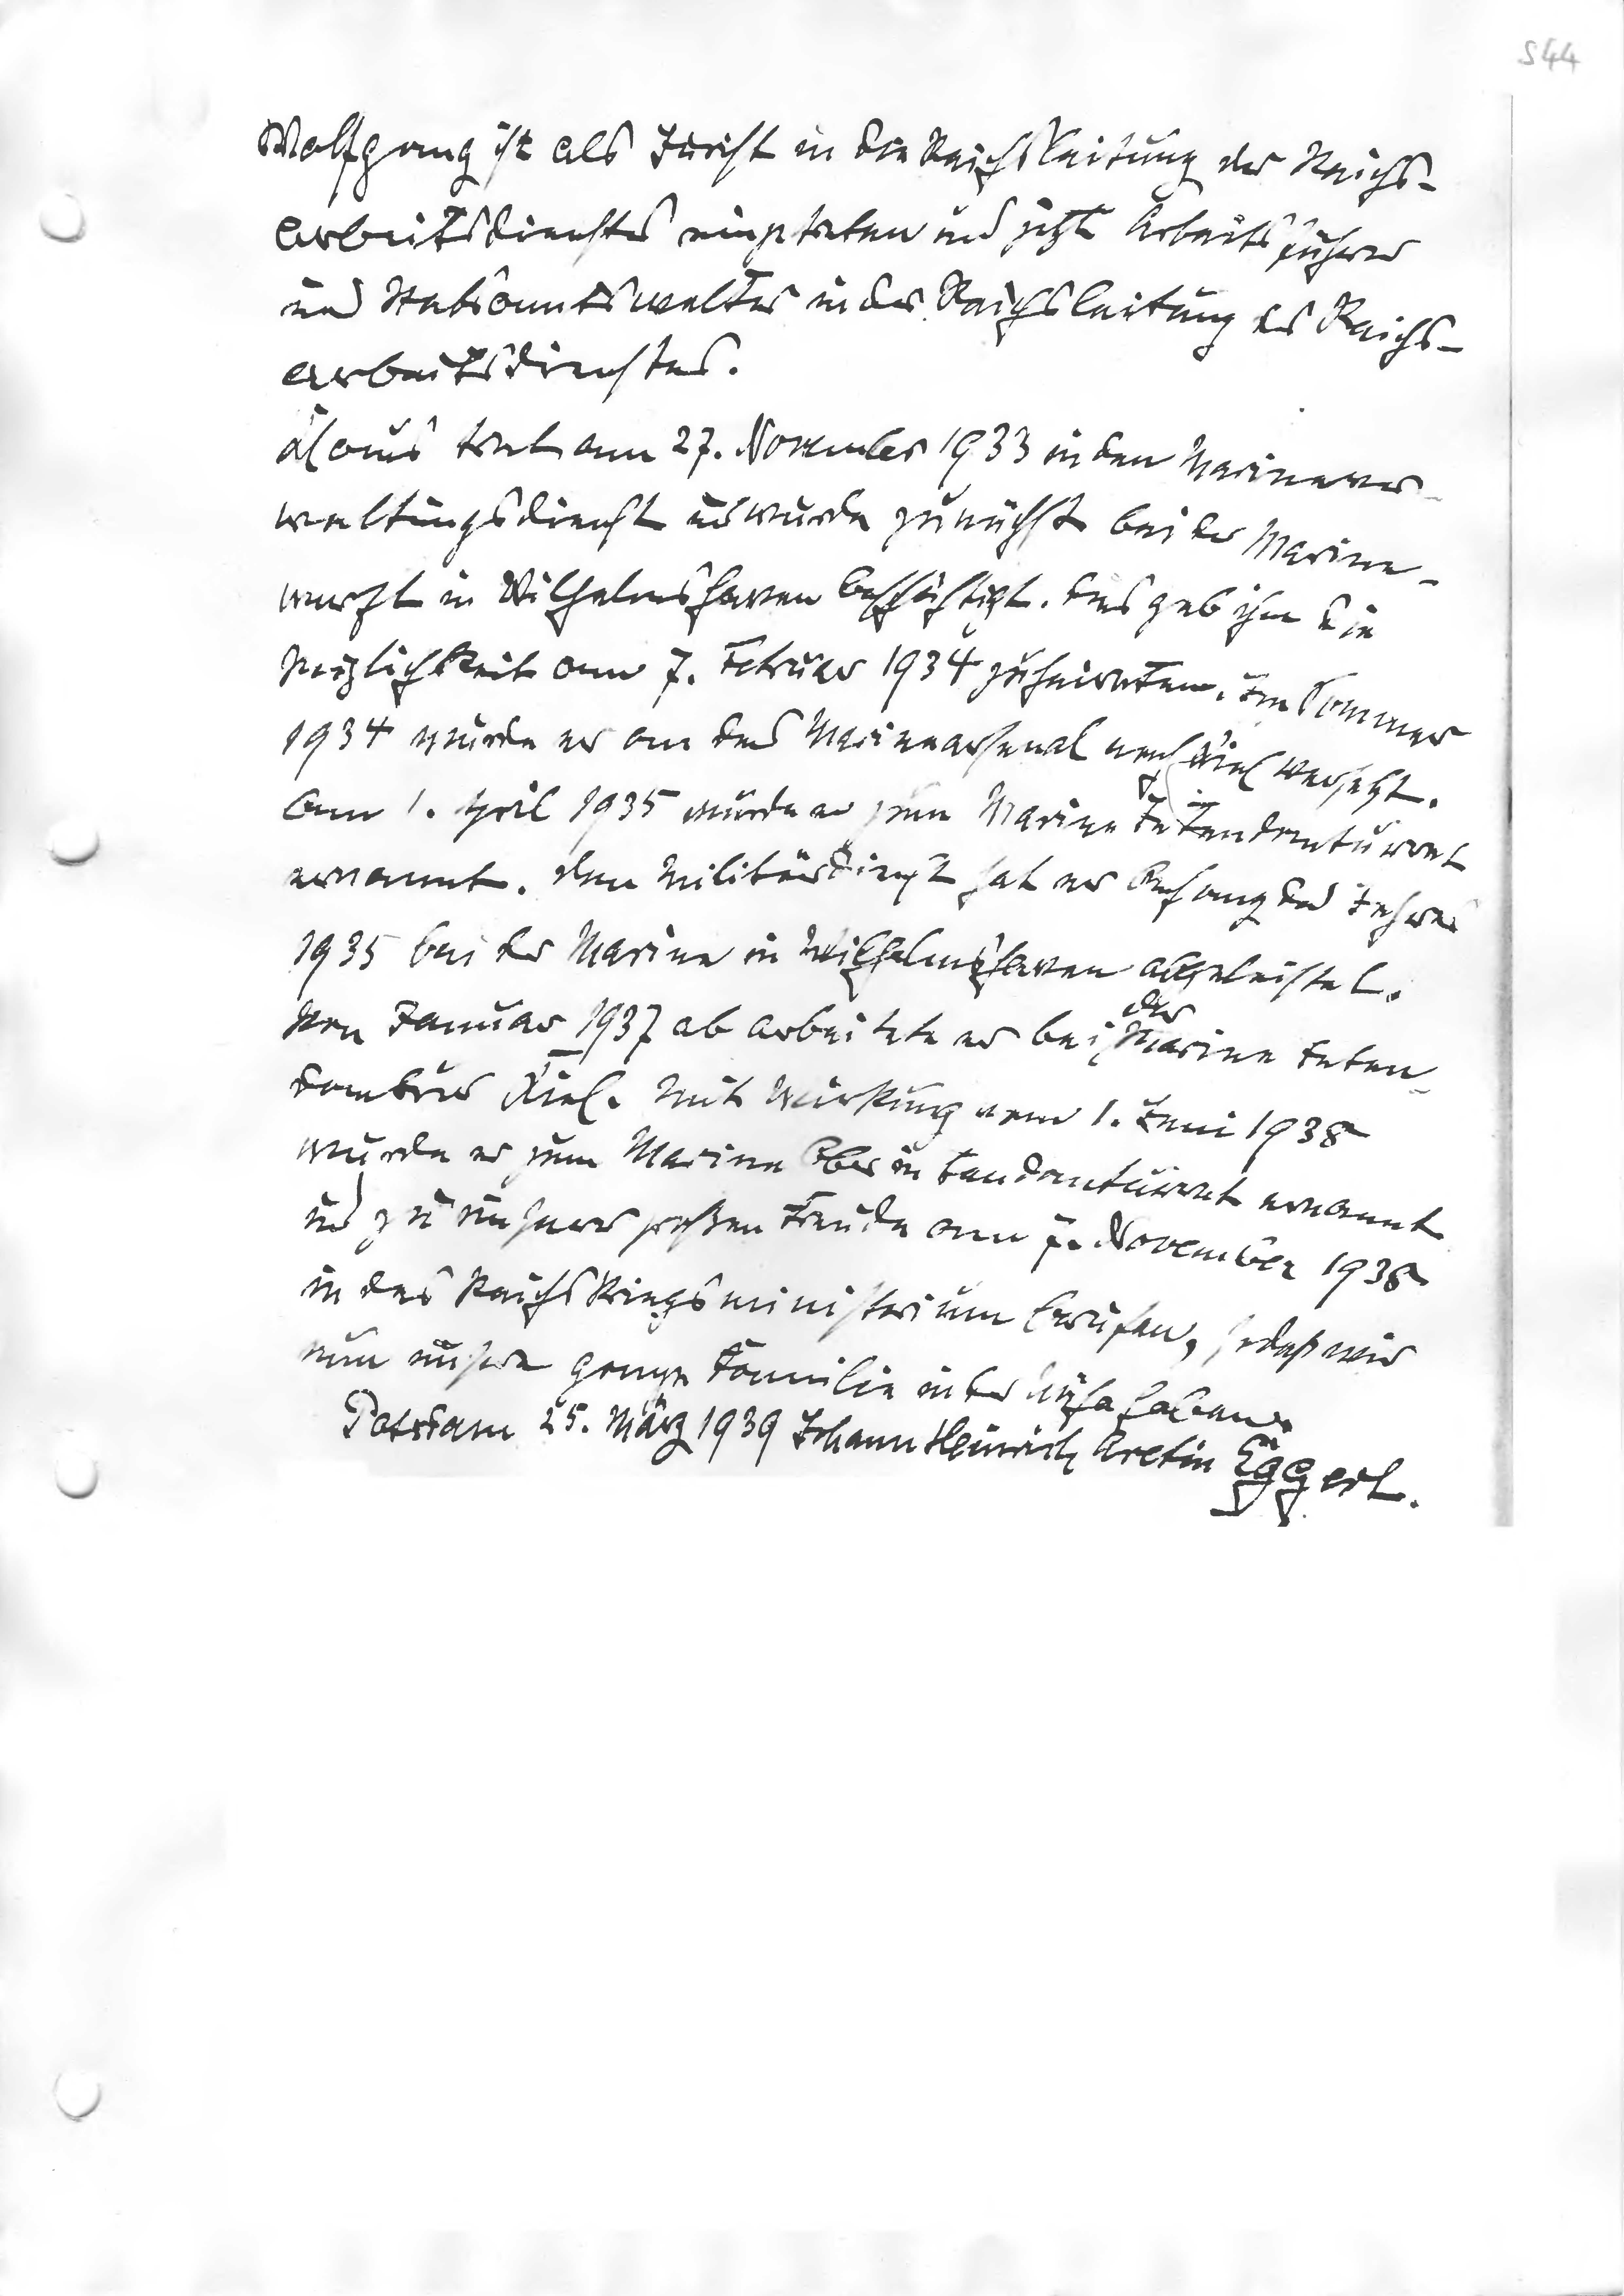 S44
Wolfgang ist als Jurist in die Reichsleitung des Reichs-
arbeitsdienstes eingetreten und jetzt Arbeitsführer
und Stabsamtswalter in der Reichsleitung des Reichs-
arbeitsdienstes.
Klaus trat am 27. November 1933 in den Marinever-
waltungsdienst und wurde zunächst bei der Marine-
werft in Wilhelmshaven beschäftigt. Dies gab ihm die
Möglichkeit am 7. Februar 1934 zu heiraten. Im Sommer
1934 wurde er an das Marinearsenal nach Kiel versetzt.
Am 1. April 1935 wurde er zum Marine Intendanturrat
ernannt. Den Militärdienst hat er Anfang des Jahres
1935 bei der Marine in Wilhelmshaven abgeleistet.
Von Januar 1937 ab arbeitete er bei der Marine Inten-
dantur Kiel. Mit Wirkung vom 1. Juni 1938
wurde er zum Marine Oberintendanturrat ernannt
und zu unserer großen Freude am 7. November 1938
in das Reichskriegsministerium berufen, sodaß wir
nun unsere ganze Familie in der Nähe haben.
Potsdam 25. März 1939 Johann Heinrich Aretin Eggert.